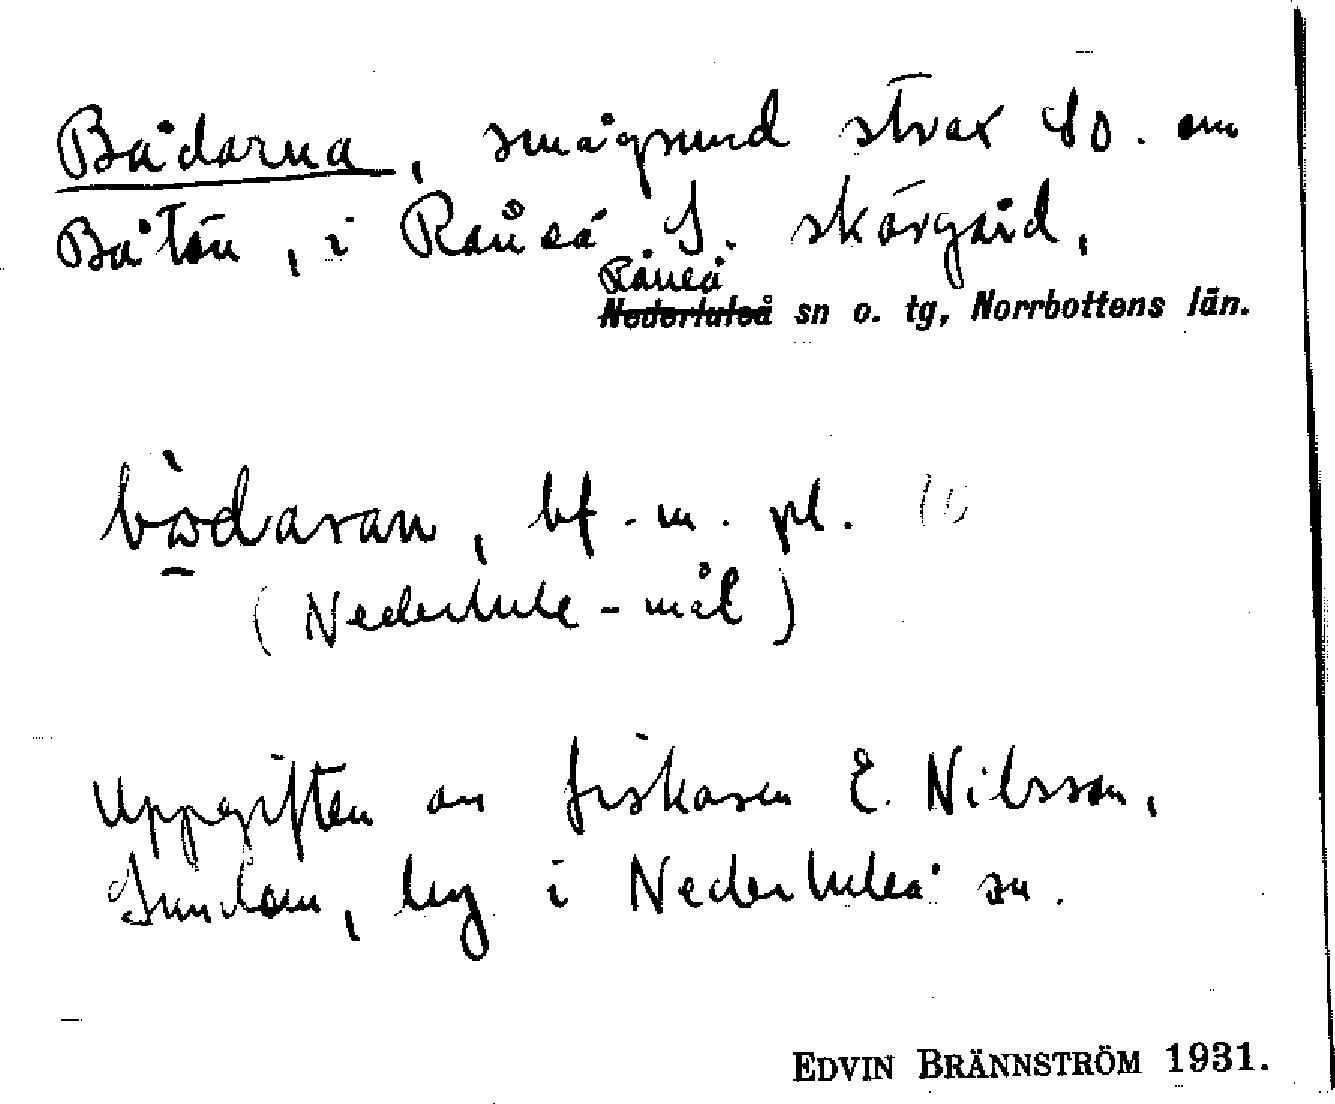 Bådarna, smågrund strax SO. om
Båtön, i Råneå S. skärgård,
Råneå
Nederluleå sn o. tg, Norrbottens län.
bådaran, bf. m. pl.
(Nederlule-mål)
Uppgiften av fiskaren E. Nilsson,
Sundom, by i Nederluleå sn.
EDVIN BRÄNNSTRÖM 1931.